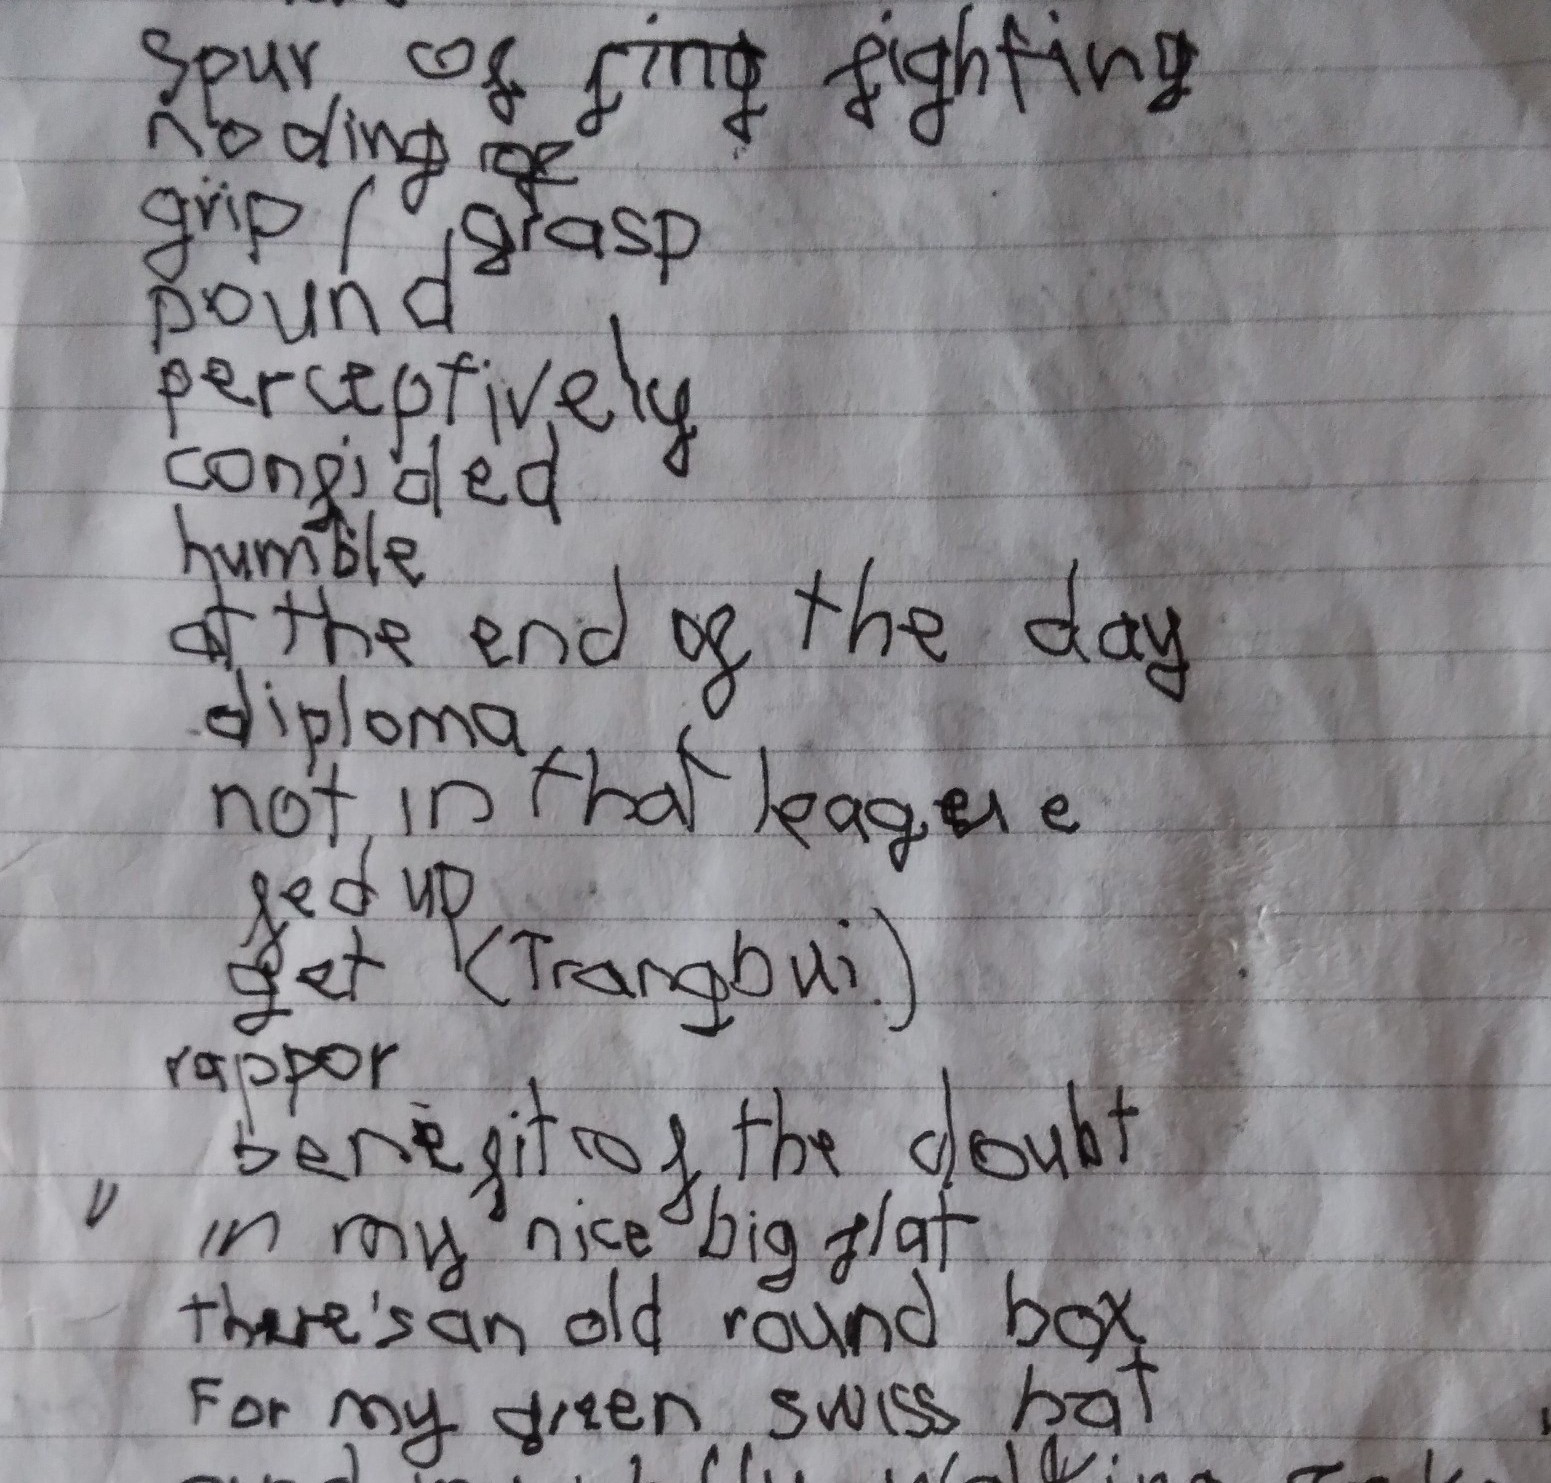 spur of fing fighting
noding of
grip / grasp
pound
perceptively
confided
humble
at the end of the day
diploma
not in that leageue
fed up
get (Trangbui)
rappor
benefit of the doubt
" in my nice big flat
there's an old round box
For my green swiss hat